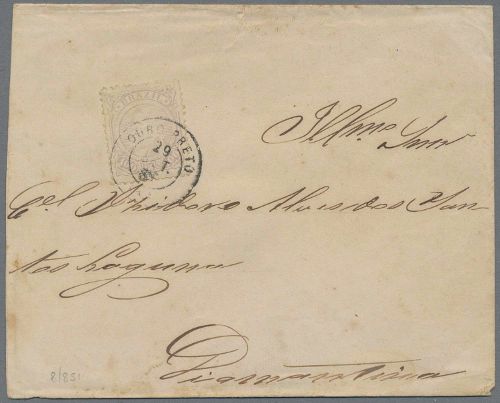 BRAZIL
OURO PRETO
29
Illmo Snr
Cel Izidoro Alves dos San-
tos Laguna
Diamantina
8/851